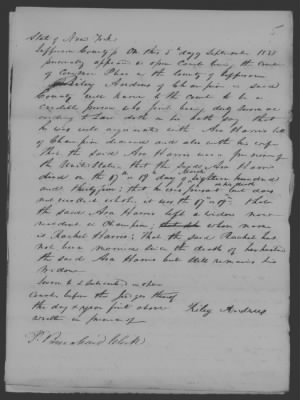 5
State of New York
Jefferson County ss On this 5th day of September 1838
personally appeared in open Court being the Court
of Common Pleas in the County of Jefferson
Riley Andrus of Champion in said
County well known to the Court to be a
credible person who first being duly sworn ac
cording to Law doth on his oath say that
he was well acquainted with Asa Harris late
of Champion deceased and also with his wife
that the said Asa Harris was a pensioner of
the United States, that the said Asa Harris
died on the 17th or 19th day of March Eighteen hundred
and thirty five; that he was present but does
not recollect which, it was the 17th or 19th. That
the said Asa Harris left a widow now
resident in Champion, whose name
is Rachel Harris; that the said Rachel has
not been married since the death of her husband
the said Asa Harris but still remains his
Widow.
Sworn to & subscribed in open
Court before the Judges thereof
the day & year first above
written in presence of
Riley Andrus
Clerk